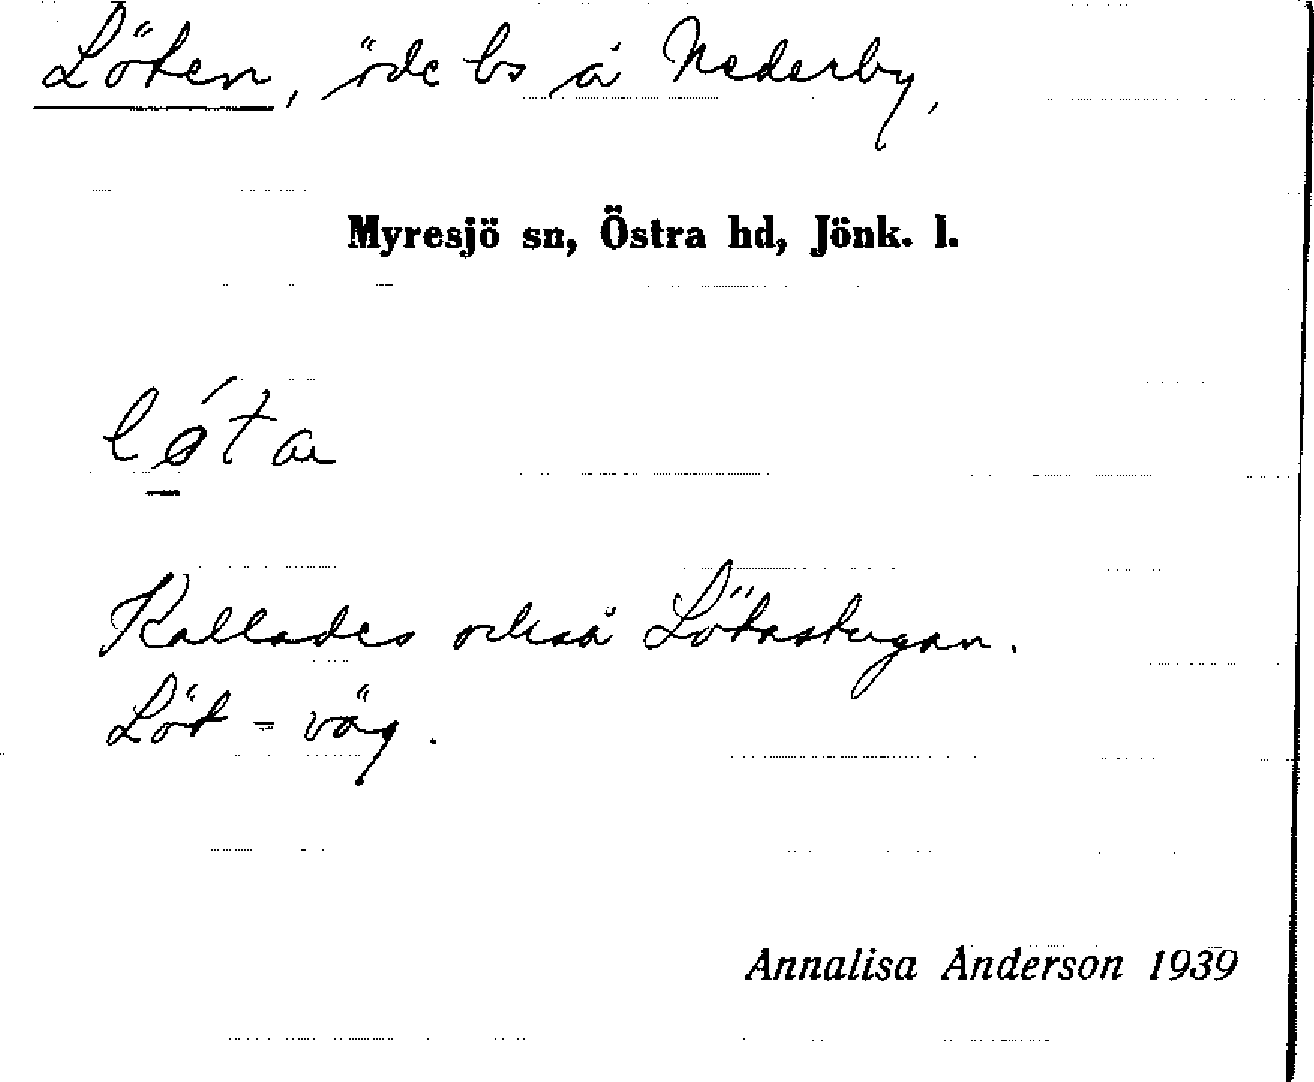 Löten, öde bs å Nederby,
Myresjö sn, Östra hd, Jönk. l.
lǿta
Kallades också Lötastugan.
Löt = väg.
Annalisa Anderson 1939